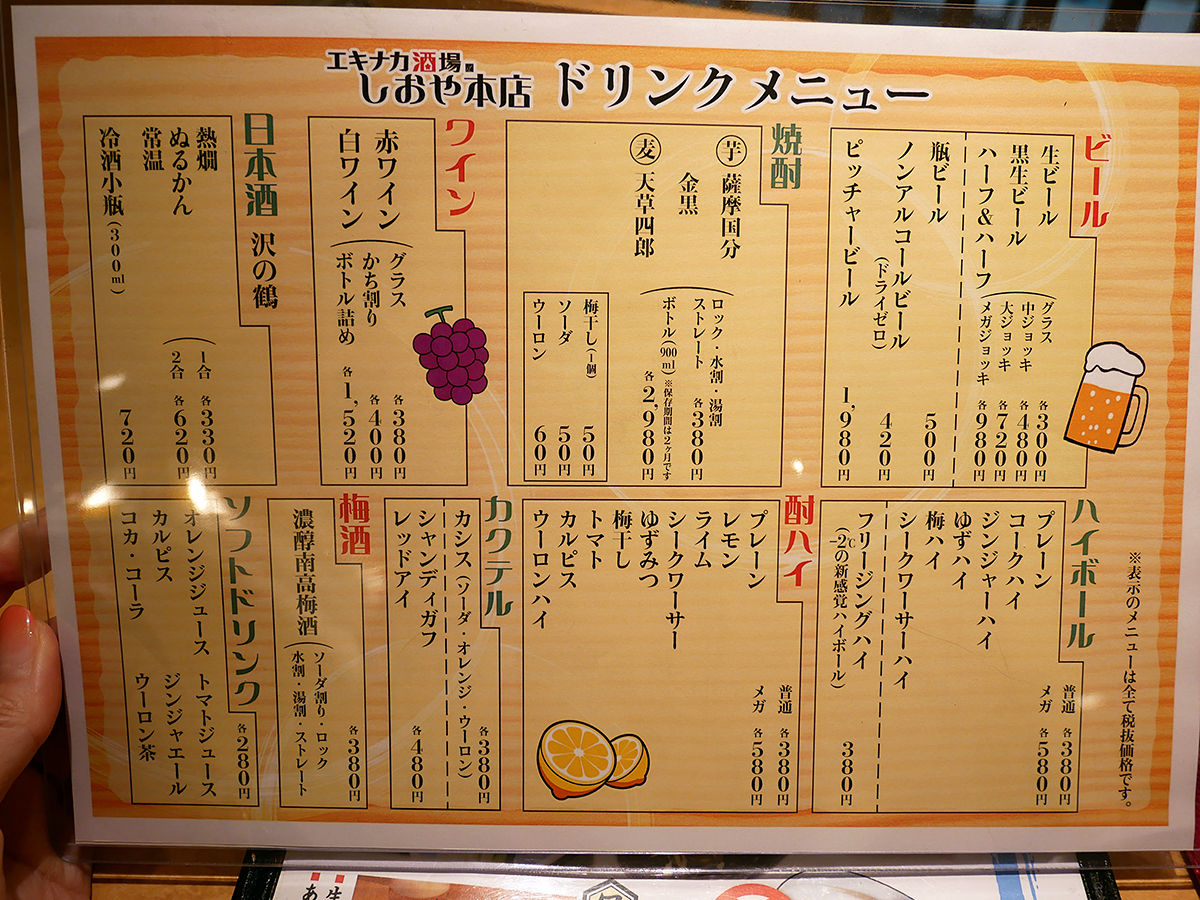 エキナカ酒場
しおや本店
ドリンクメニュー
ビール
生ビール
黒生ビール
ハーフ&ハーフ
グラス 各300円
中ジョッキ 各480円
大ジョッキ 各720円
メガジョッキ 各980円
瓶ビール 500円
ノンアルコールビール
(ドライゼロ) 420円
ピッチャービール 1,980円
焼酎
芋 薩摩国分
金黒
麦 天草四郎
ロック・水割・湯割
ストレート 各380円
ボトル(900ml) 各2,980円
※保存期間は2ヶ月です
梅干し(1個) 50円
ソーダ 50円
ウーロン 60円
ワイン
赤ワイン
白ワイン
グラス 各380円
かち割り 各400円
ボトル詰め 各1,520円
日本酒 沢の鶴
熱燗
ぬるかん
常温
1合 各330円
2合 各620円
冷酒小瓶(300ml) 720円
※表示のメニューは全て税抜価格です。
ハイボール
普通 各380円
メガ 各580円
プレーン
コークハイ
ジンジャーハイ
ゆずハイ
梅ハイ
シークワーサーハイ
フリージングハイ 380円
(-2℃の新感覚ハイボール)
酎ハイ
プレーン
レモン
ライム
シークワーサー
ゆずみつ
梅干し
トマト
カルピス
ウーロンハイ
普通 各380円
メガ 各580円
カクテル
カシス(ソーダ・オレンジ・ウーロン) 各380円
シャンディガフ
レッドアイ
各480円
梅酒
濃醇南高梅酒
ソーダ割り・ロック
水割・湯割・ストレート
各380円
ソフトドリンク
各280円
オレンジジュース トマトジュース
カルピス ジンジャエール
コカ・コーラ ウーロン茶
生
あ